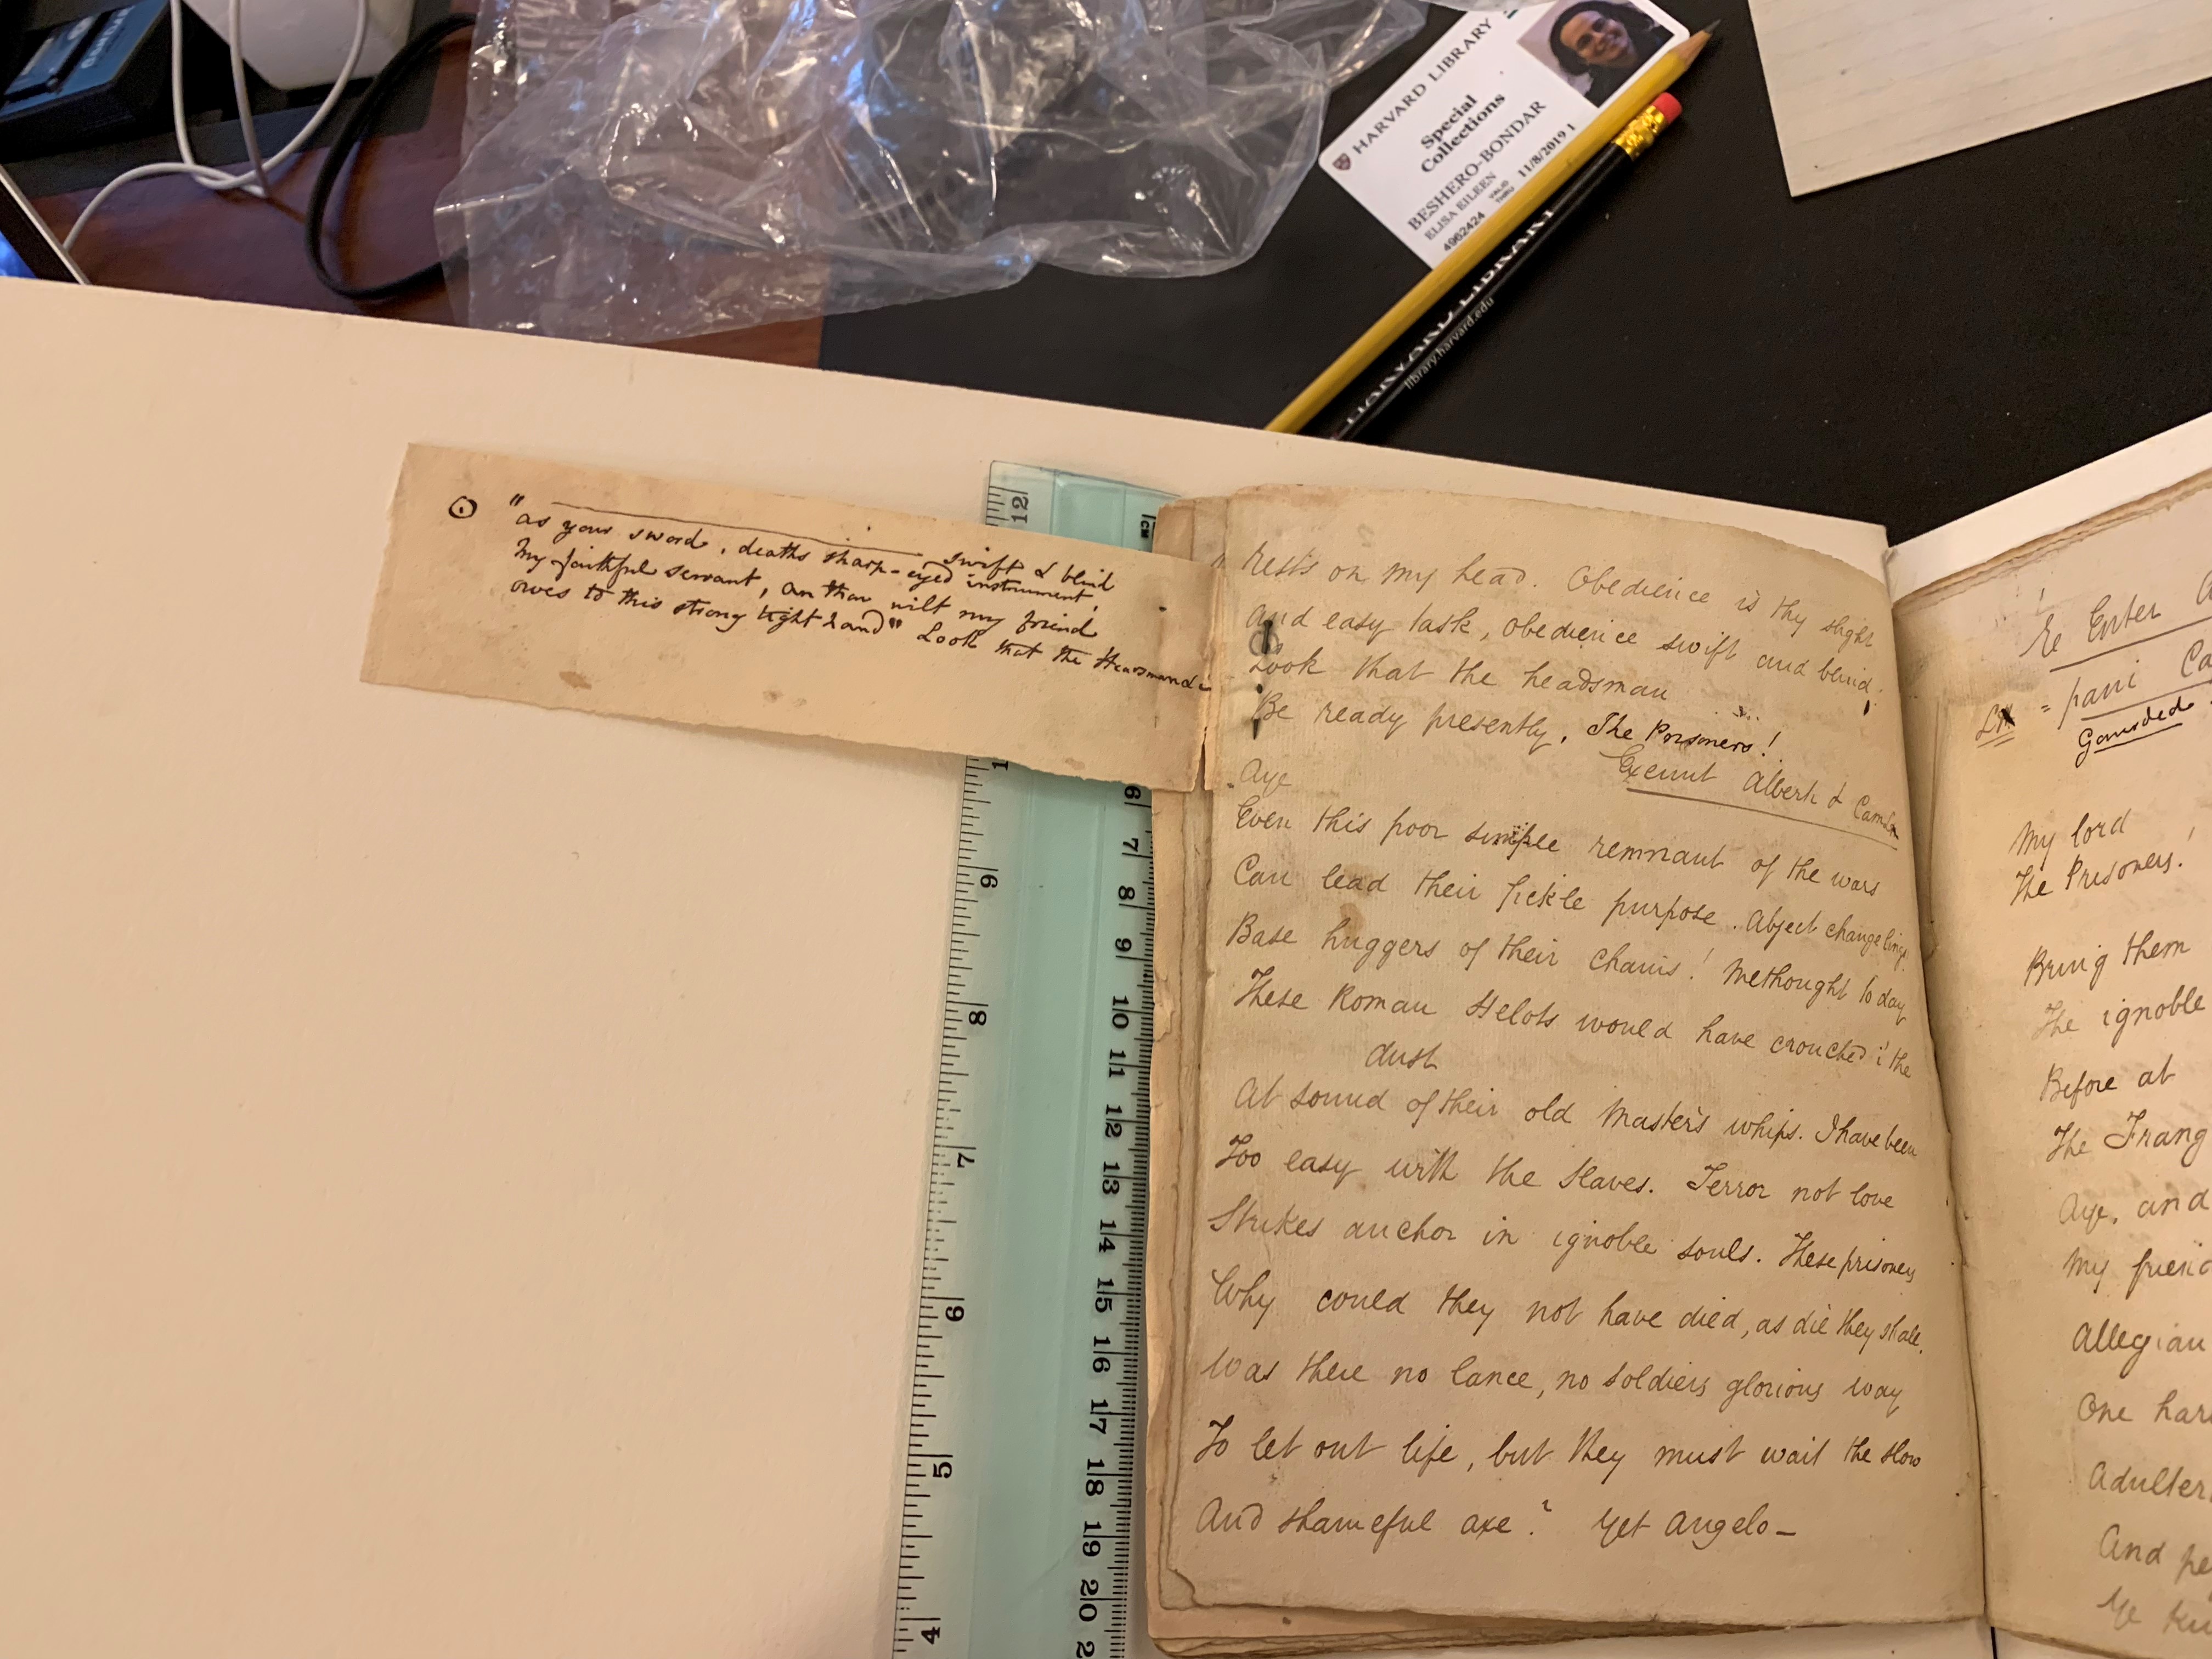 HARVARD LIBRARY
Special
Collections
BESHERO-BONDAR
ELISA EILEEN
4962424 VALID THRU 11/8/2019 1
HARVARD LIBRARY
library.harvard.edu
" swift & blind
as your sword, deaths sharp-eyed instrument,
My faithful servant, an thou wilt my friend
owes to this strong right hand" Look that the Headsman &c
12
CM
1
9
8
7
6
5
4
6
7
8
9
10
11
12
13
14
15
16
17
18
19
20
2
" Rests on my head. Obedience is thy slight
And easy task, obedience swift and blind.
Look that the headsman
Be ready presently. The Prisoners!
Exeunt Alberti &
Aye
Even this poor simple remnant of the wars
Can lead their fickle purpose. Abject changelings
Base huggers of their chains! Methought to day
These Roman Helots would have crouched i' the
dust
At sound of their old Master's whips. I have been
Too easy with the Slaves. Terror not love
Strikes anchor in ignoble souls. These prisoners
Why could they not have died, as die they shall.
Was there no lance, no soldiers glorious way
To let out life, but they must wait the slow
And shameful axe? Yet Angelo—
Enter
My lord
The Prisoners!
Bring them
The ignoble
Before at
The Frang
Aye, and
My friend
Allegian
One har
Adulter
And pe
Ye